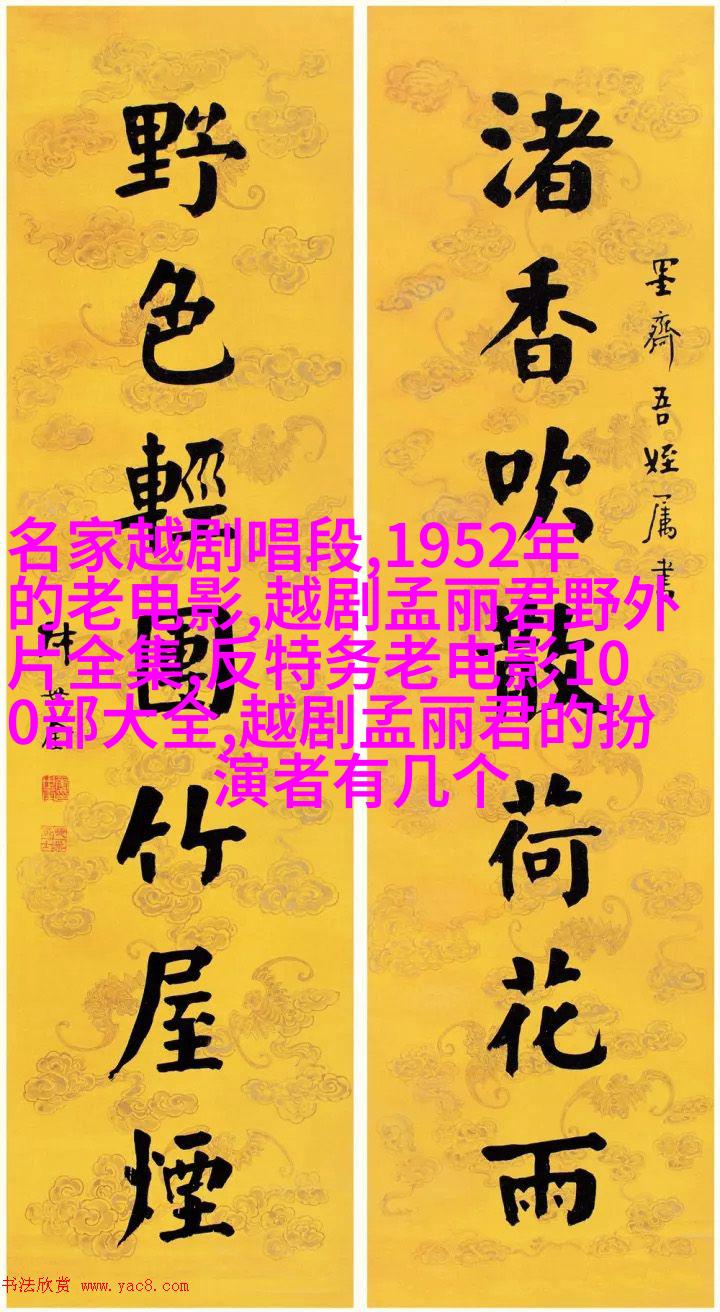 渚香吹散荷花雨
墨齋吾姪属書
野色輕團竹屋煙
林世焘
名家越剧唱段,1952年
的老电影,越剧孟丽君野外
片全集,反特务老电影10
0部大全,越剧孟丽君的扮
演者有几个
书法欣赏 www.yac8.com